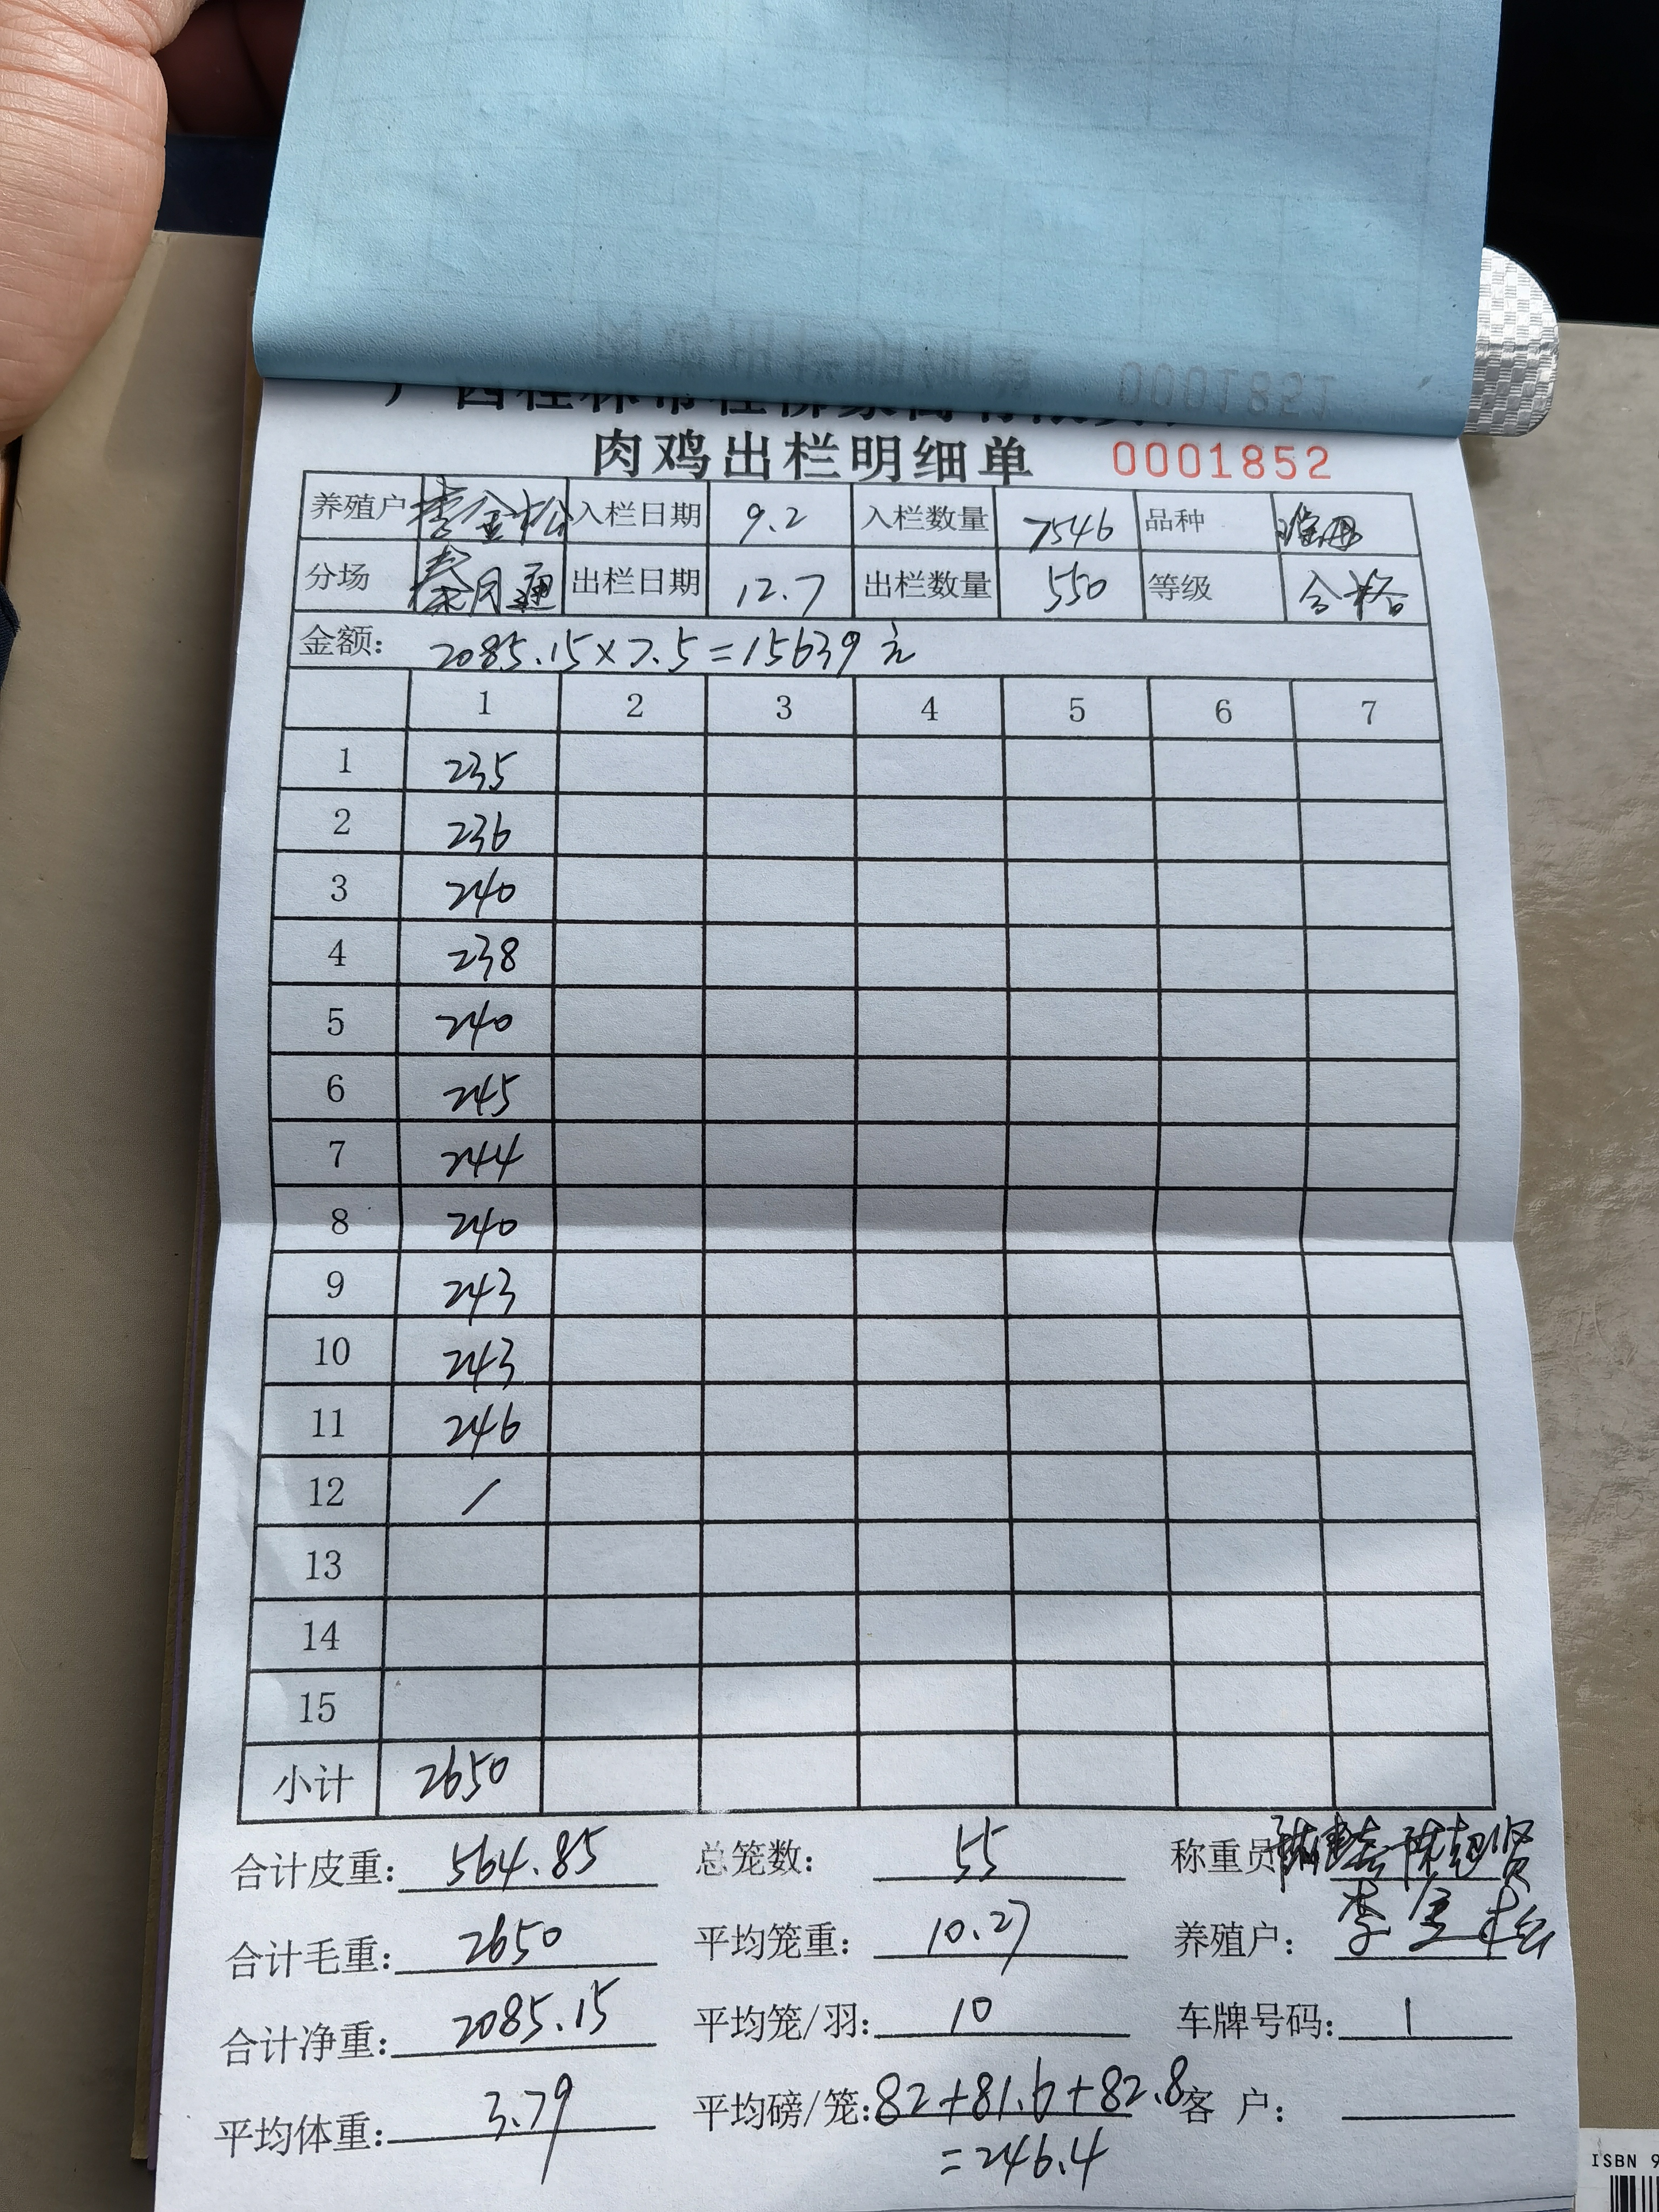 肉鸡出栏明细单 0001852
养殖户 李金松 入栏日期 9.2 入栏数量 7546 品种
分场 秦月通 出栏日期 12.7 出栏数量 550 等级 合格
金额: 2085.15×7.5=15639元
1 2 3 4 5 6 7
1 235
2 236
3 240
4 238
5 240
6 245
7 244
8 240
9 243
10 243
11 246
12 /
13
14
15
小计 2650
合计皮重: 564.85 总笼数: 55 称重员
合计毛重: 2650 平均笼重: 10.27 养殖户: 李金松
合计净重: 2085.15 平均笼/羽: 10 车牌号码: 1
平均体重: 3.79 平均磅/笼: 82+81.6+82.8 客 户:
=246.4
ISBN 9